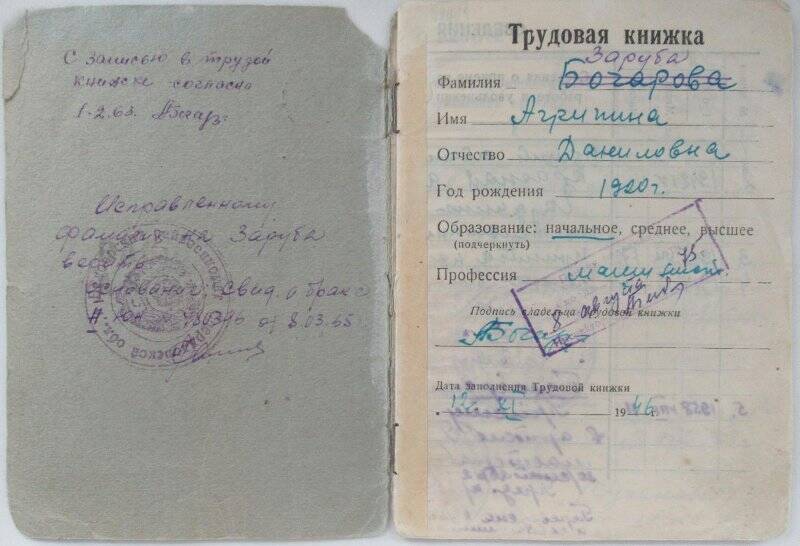 С записью в трудой
книжке согласна
1-2.63. Богар
Исправленному
фамилия на Заруба
верить
Основание: Свид. о браке
от 8.03.65.
Трудовая книжка
Заруба
Фамилия Бочарова
Имя Агрипина
Отчество Даниловна
Год рождения 1920г.
Образование: начальное, среднее, высшее
(подчеркнуть)
Профессия
Подпись владельца Трудовой книжки
Дата заполнения Трудовой книжки
12. XI 1946 г.